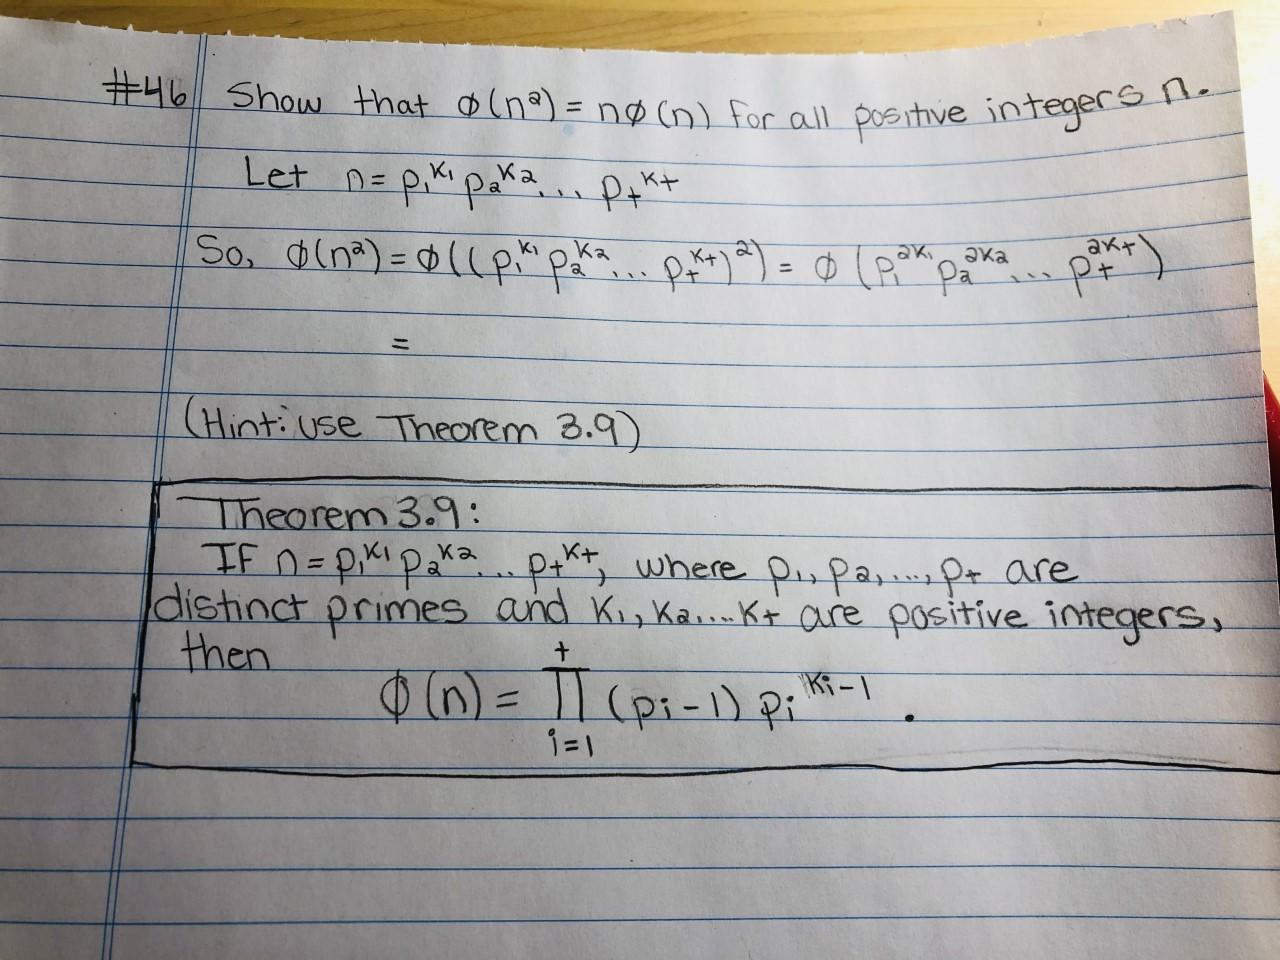 #46 Show that ϕ(n²) = nϕ(n) for all positive integers n.
Let n = p₁^k₁ p₂^k₂ ... pₜ^kₜ
So, ϕ(n²) = ϕ((p₁^k₁ p₂^k₂ ... pₜ^kₜ)²) = ϕ(p₁^2k₁ p₂^2k₂ ... pₜ^2kₜ)
=
(Hint: use Theorem 3.9)
Theorem 3.9:
If n = p₁^k₁ p₂^k₂ ... pₜ^kₜ, where p₁, p₂, ..., pₜ are
distinct primes and k₁, k₂, ... kₜ are positive integers,
then
ϕ(n) = ∏_{i=1}^{t} (pᵢ-1) pᵢ^{kᵢ-1}.